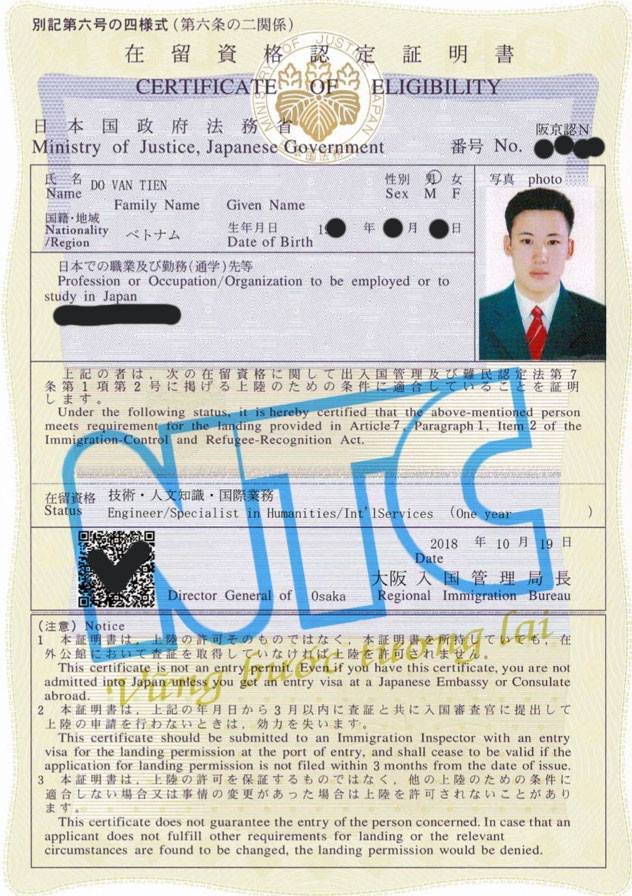 別記第六号の四様式(第六条の二関係)
在留資格認定証明書
CERTIFICATE OF ELIGIBILITY
MINISTRY OF JUSTICE JAPAN
日本国政府法務省
Ministry of Justice, Japanese Government
阪京認N
番号 No.
氏名 DO VAN TIEN
Name
Family Name Given Name
性別 男 女
Sex M F
写真 photo
国籍・地域
Nationality
/Region
ベトナム
生年月日 年 月 日
Date of Birth
日本での職業及び勤務(通学)先等
Profession or Occupation/Organization to be employed or to
study in Japan
上記の者は、次の在留資格に関して出入国管理及び難民認定法第7
条第1項第2号に掲げる上陸のための条件に適合していることを証明
します。
Under the following status, it is hereby certified that the above-mentioned person
meets requirement for the landing provided in Article 7, Paragraph 1, Item 2 of the
Immigration-Control and Refugee-Recognition Act.
NTC
在留資格 技術・人文知識・国際業務
Status Engineer/Specialist in Humanities/Int'lServices (One year )
2018 年 10 月 19 日
Date
大阪入国管理局長
Director General of Osaka Regional Immigration Bureau
Vững bước tương lai
(注意) Notice
1 本証明書は、上陸の許可そのものではなく、本証明書を所持していても、在
外公館において査証を取得していなければ上陸を許可されません。
This certificate is not an entry permit. Even if you have this certificate, you are not
admitted into Japan unless you get an entry visa at a Japanese Embassy or Consulate
abroad.
2 本証明書は、上記の年月日から3月以内に査証と共に入国審査官に提出して
上陸の申請を行わないときは、効力を失います。
This certificate should be submitted to an Immigration Inspector with an entry
visa for the landing permission at the port of entry, and shall cease to be valid if the
application for landing permission is not filed within 3 months from the date of issue.
3 本証明書は、上陸の許可を保証するものではなく、他の上陸のための条件に
適合しない場合又は事情の変更があった場合は上陸を許可されないことがあり
ます。
This certificate does not guarantee the entry of the person concerned. In case that an
applicant does not fulfill other requirements for landing or the relevant
circumstances are found to be changed, the landing permission would be denied.